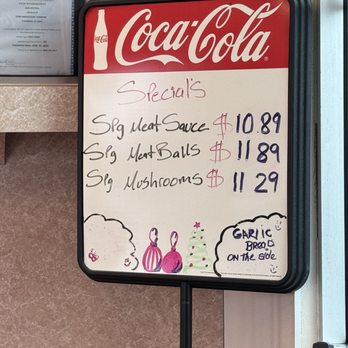 Coca-Cola
Special's
Spg Meat Sauce $ 10.89
Spg Meat Balls $ 11 89
Spg Mushrooms $ 11 29
GARlic
BREAD
ON the side